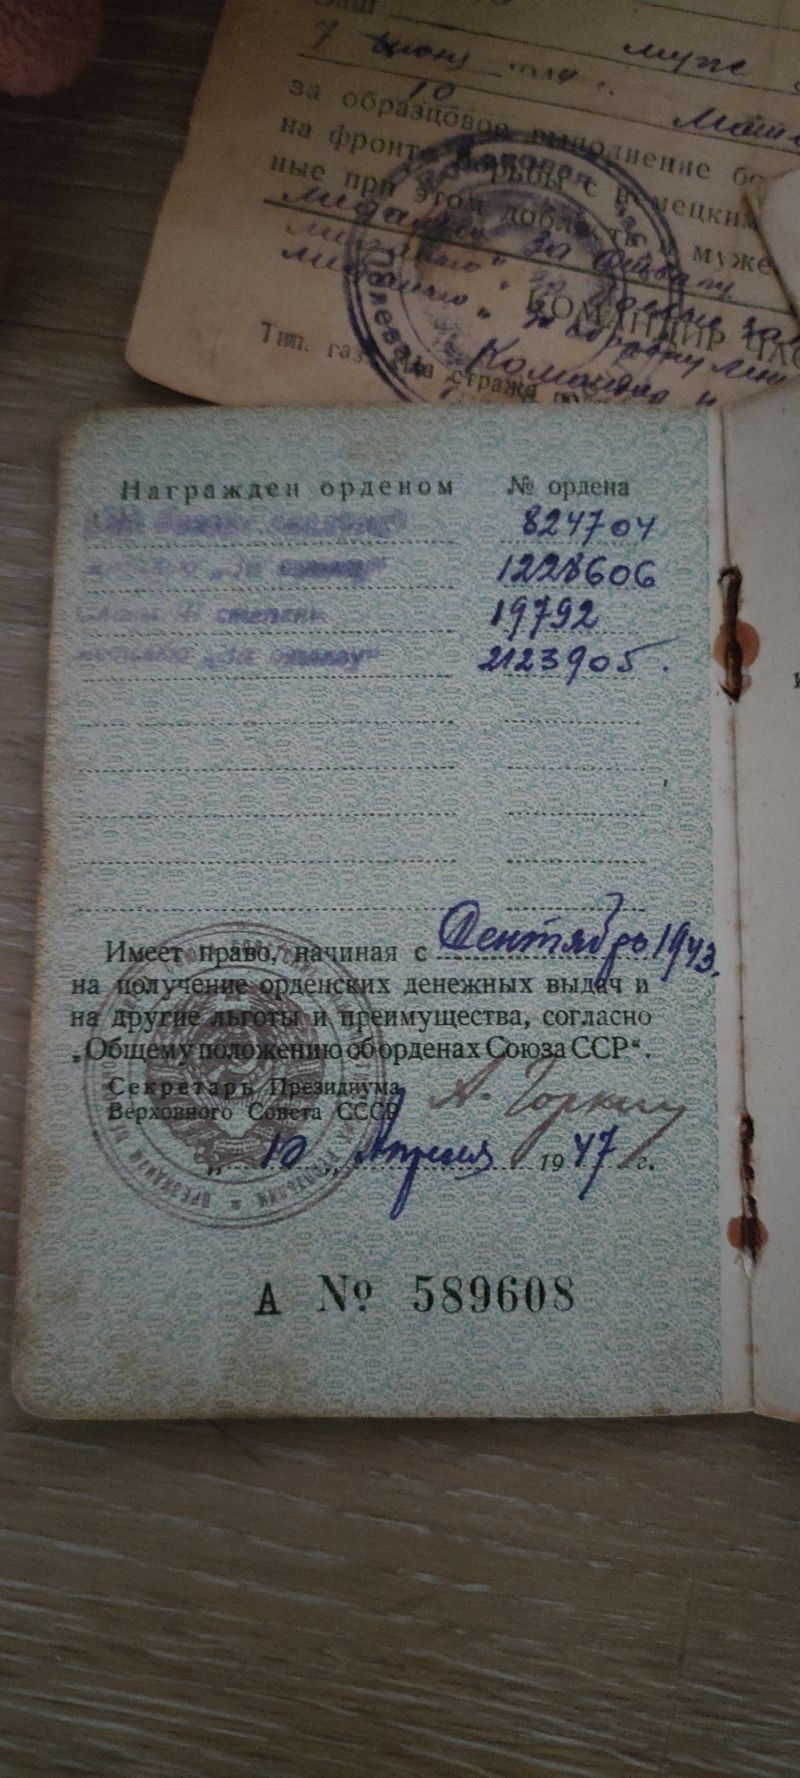 Ваш
муже
7 июня
10
за образцовое выполнение бо
на фронте борьбы с немецким
ные при этом доблесть и муже
медалью „За отвагу
медалью „За боевые за
медалью „За оборону Лен
КОМАНДИР ЧАС
Тип. газ. „На стражe
Награжден орденом № ордена
824704
медалью „За отвагу“ 1228606
Славы степени 19792
медалью „За отвагу“ 2123905.
Имеет право, начиная с Сентябрь 1943.
на получение орденских денежных выдач и
на другие льготы и преимущества, согласно
„Общему положению об орденах Союза ССР“.
Секретарь Президиума
Верховного Совета СССР А. Горкин
„10„ Апреля 1947 г.
А № 589608